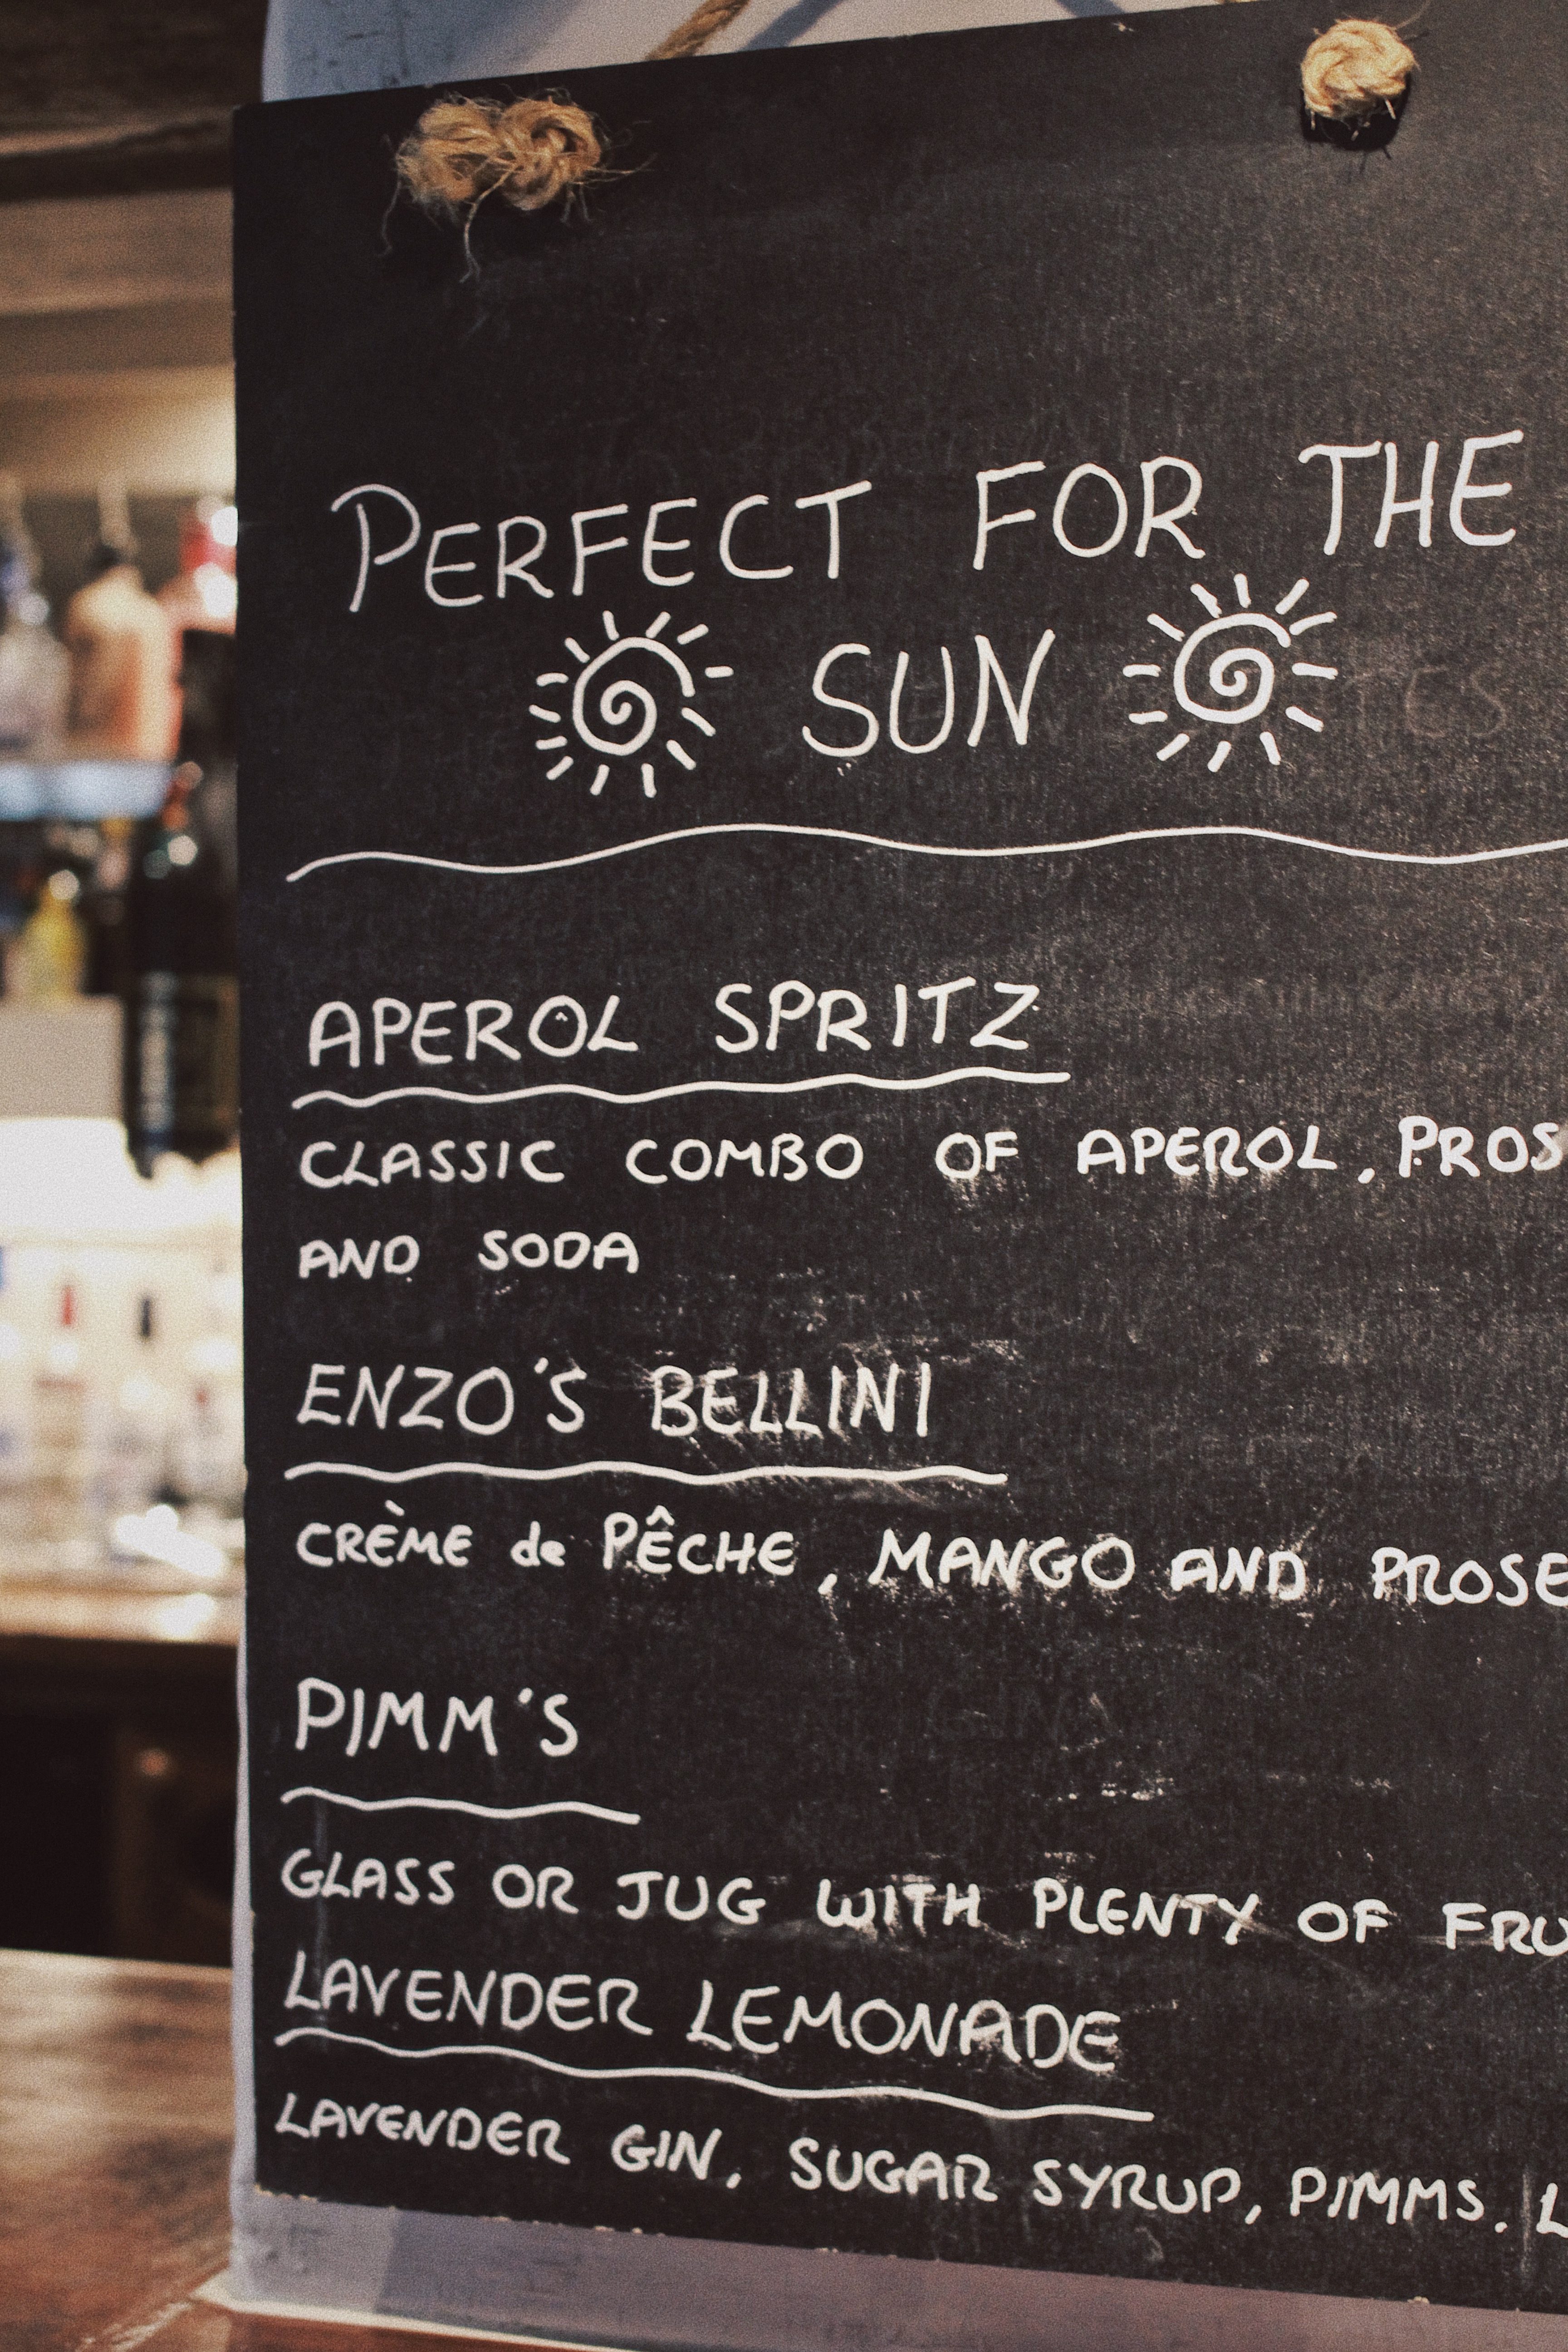 PERFECT FOR THE
SUN
APEROL SPRITZ
CLASSIC COMBO OF APEROL, PROS
AND SODA
ENZO'S BELLINI
CRÈME de PÊCHE, MANGO AND PROSE
PIMM'S
GLASS OR JUG WITH PLENTY OF FRU
LAVENDER LEMONADE
LAVENDER GIN, SUGAR SYRUP, PIMMS. L